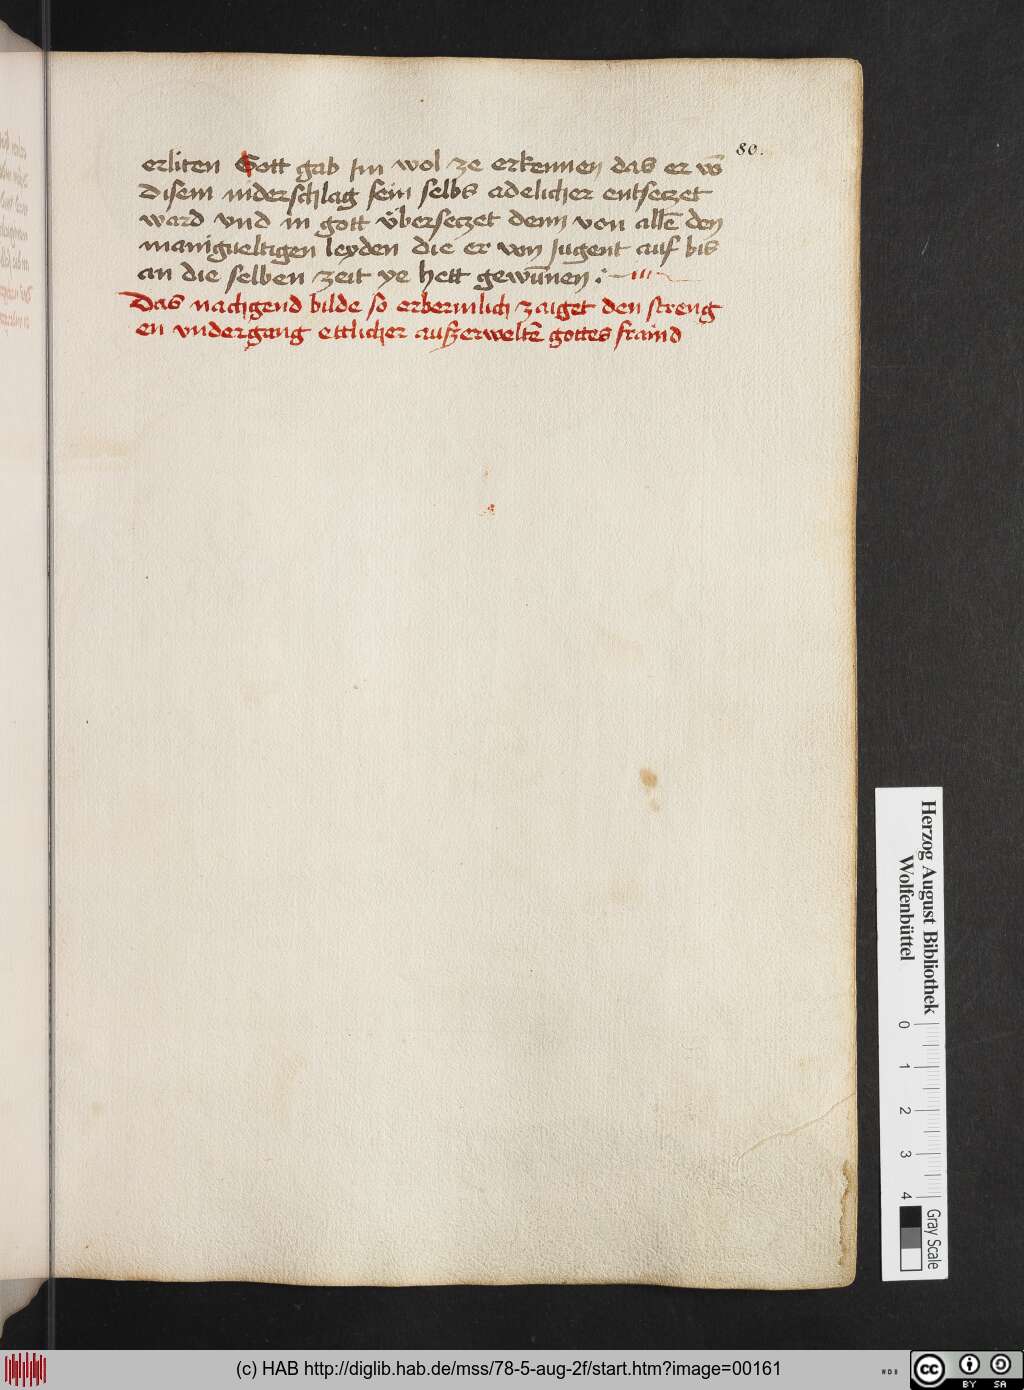 80.
erliten Gott gab Im wol ze erkennen das er vō
disem niderschlag sein selbs adelicher entseczet
ward vnd in gott v̈berseczet denn von allē den
manigueltigen leyden die er von Jugent auf bis
an die selben zeit ye hett gewūnen :
Das nachgend bilde so erbermlich zaiget den streng
en vndergang ettlicher außerweltē gottes fraind
Herzog August Bibliothek
Wolfenbüttel
0 1 2 3 4
Gray Scale
(c) HAB http://diglib.hab.de/mss/78-5-aug-2f/start.htm?image=00161
cc BY SA